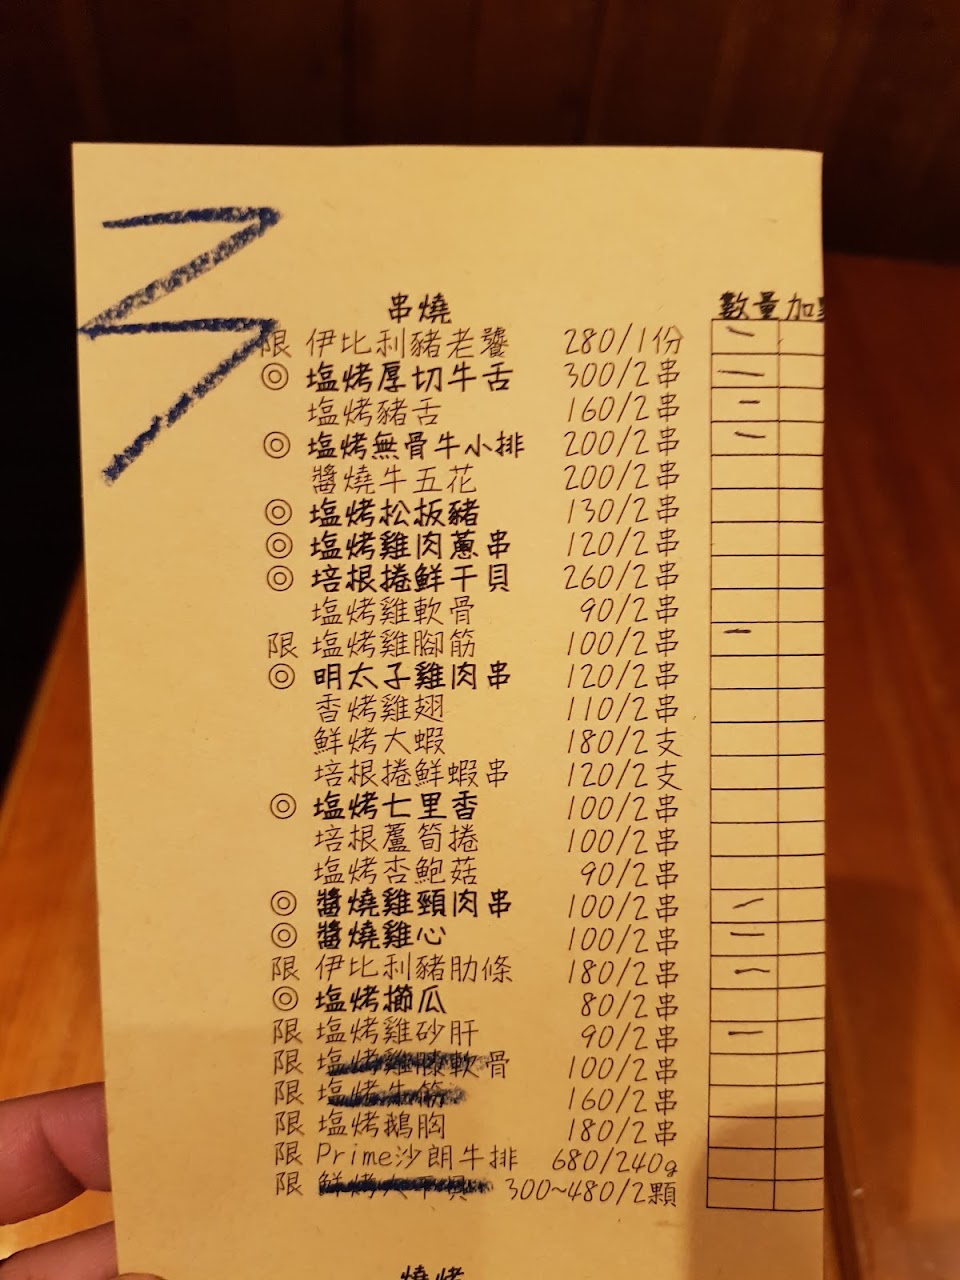 串燒 數量 加
限 伊比利豬老饕 280/1份 一
◎ 塩烤厚切牛舌 300/2串 一
塩烤豬舌 160/2串 一
◎ 塩烤無骨牛小排 200/2串 一
醬燒牛五花 200/2串
◎ 塩烤松板豬 130/2串
◎ 塩烤雞肉蔥串 120/2串
◎ 培根捲鮮干貝 260/2串
塩烤雞軟骨 90/2串
限 塩烤雞腳筋 100/2串 一
◎ 明太子雞肉串 120/2串
香烤雞翅 110/2串
鮮烤大蝦 180/2支
培根捲鮮蝦串 120/2支
◎ 塩烤七里香 100/2串
培根蘆筍捲 100/2串
塩烤杏鮑菇 90/2串
◎ 醬燒雞頸肉串 100/2串 一
◎ 醬燒雞心 100/2串 一
限 伊比利豬肋條 180/2串 一
◎ 塩烤櫛瓜 80/2串
限 塩烤雞砂肝 90/2串 一
限 塩烤雞膝軟骨 100/2串
限 塩烤牛筋 160/2串
限 塩烤鵝胸 180/2串
限 Prime沙朗牛排 680/240g
限 鮮烤大干貝 300~480/2顆
燒烤